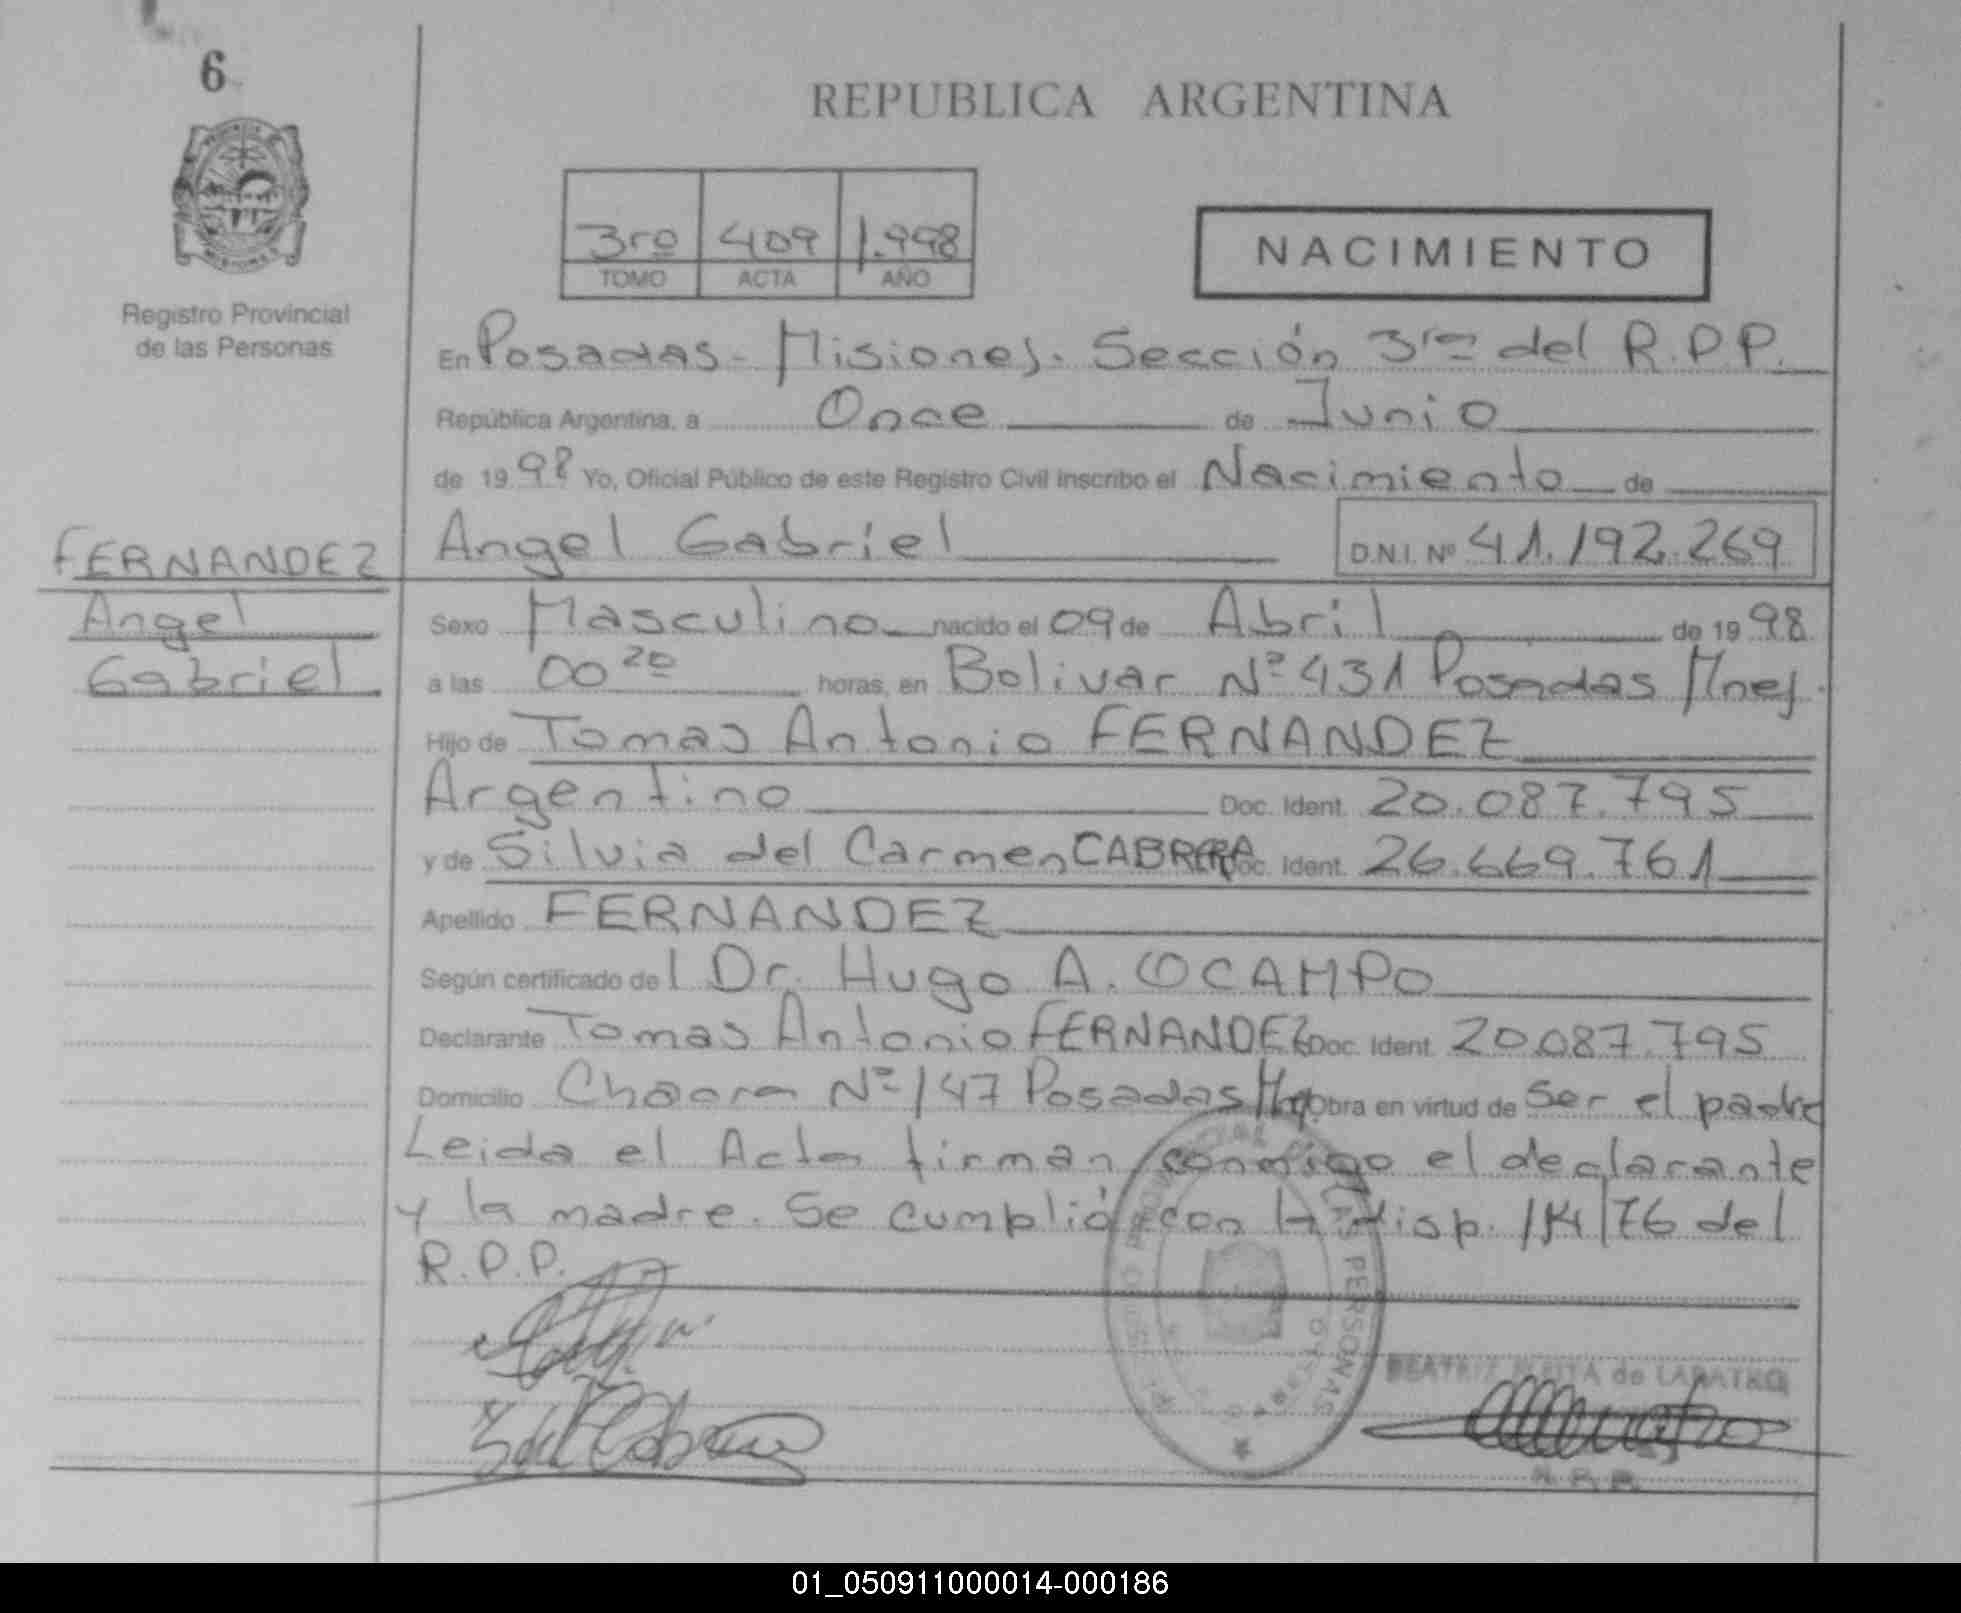 6
REPUBLICA ARGENTINA
3ro 409 1.998
TOMO ACTA AÑO
NACIMIENTO
Registro Provincial
de las Personas
En Posadas - Misiones. Sección 3ra del R.P.P.
República Argentina, a Once de Junio
de 19 98 Yo, Oficial Público de este Registro Civil inscribo el Nacimiento de
FERNANDEZ
Angel
Gabriel
Angel Gabriel D.N.I. Nº 41.192.269
Sexo Masculino nacido el 09 de Abril de 19 98
a las 00 20 horas, en Bolivar Nº 431 Posadas Mnes.
Hijo de Tomas Antonio FERNANDEZ
Argentino Doc. Ident. 20.087.795
y de Silvia del Carmen CABRERA Doc. Ident. 26.669.761
Apellido FERNANDEZ
Según certificado de l Dr. Hugo A. OCAMPO
Declarante Tomas Antonio FERNANDEZ Doc. Ident. 20.087.795
Domicilio Chacra Nº 147 Posadas Obra en virtud de Ser el padre
Leida el Acta firman conmigo el declarante
y la madre. Se cumplió con la disp. /76 del
R.P.P.
BEATRIZ de
R. P. P.
01_050911000014-000186